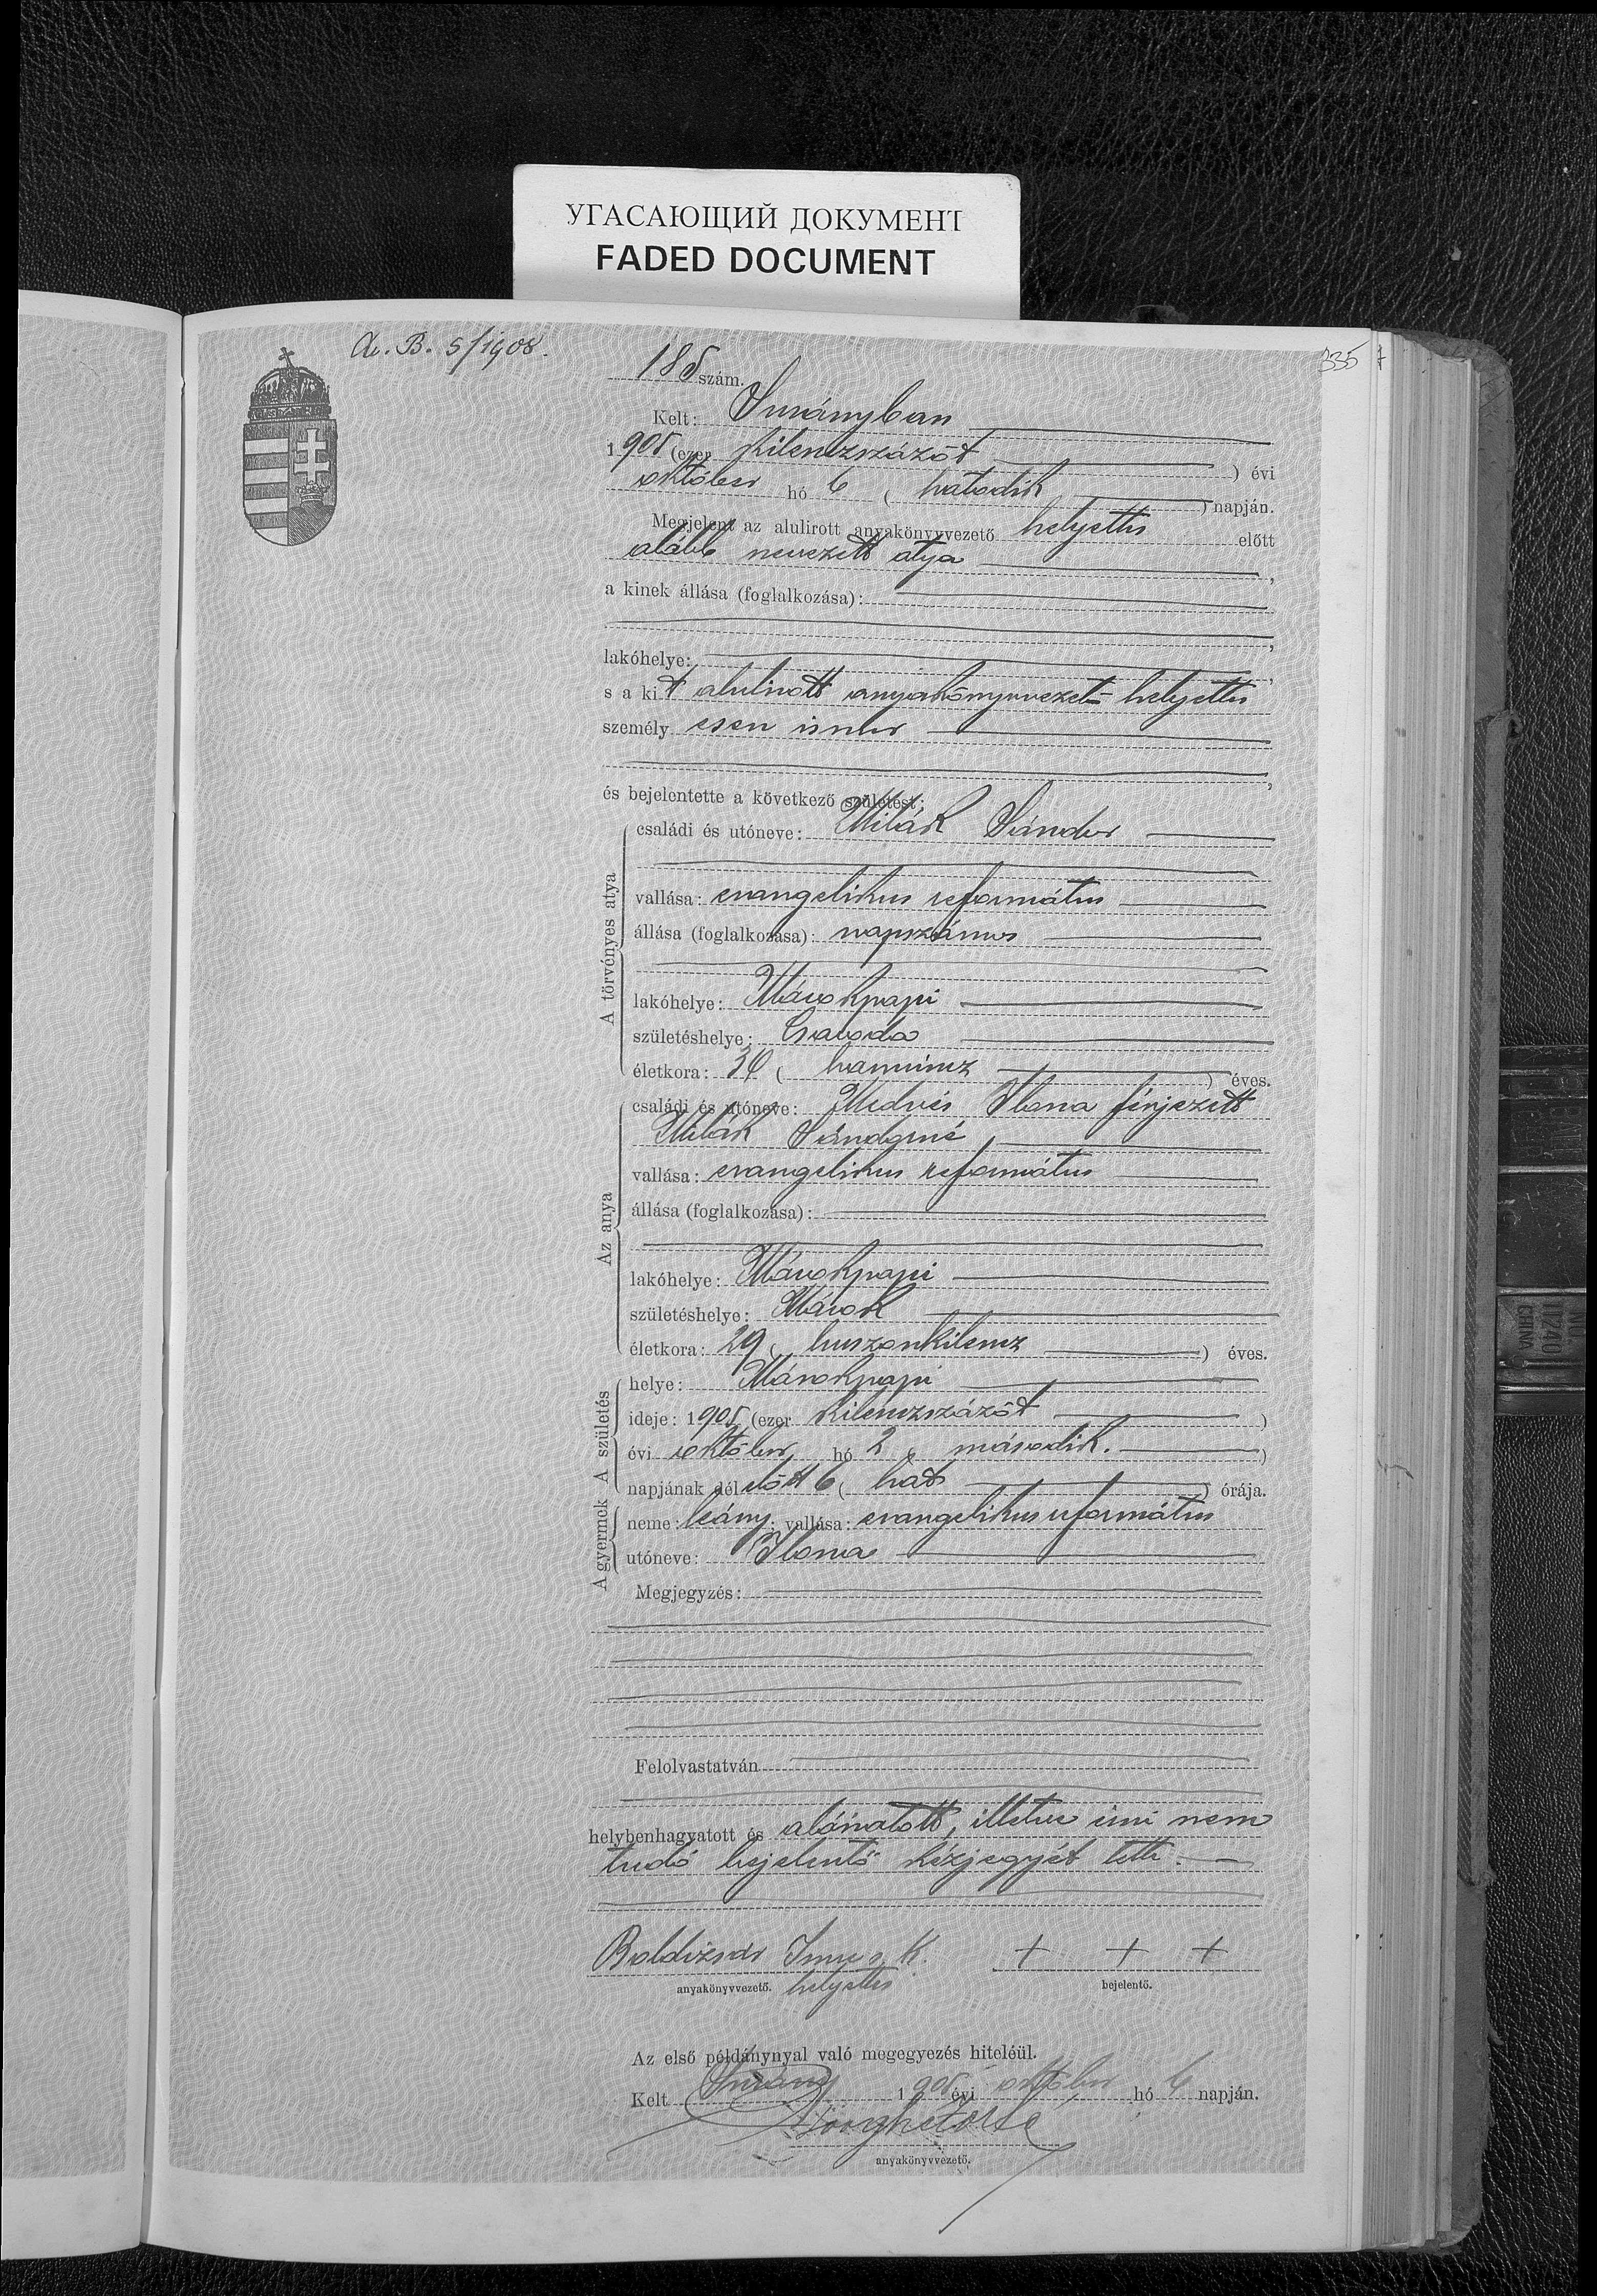 УГАСАЮЩИЙ ДОКУМЕНТ
FADED DOCUMENT
A. B. 5/1908.
335
185 szám.
Kelt: Surányban
1905 (ezer kilenczszázöt ) évi
október hó 6 ( hatodik ) napján.
Megjelent az alulirott anyakönyvvezető helyettes előtt
alább nevezett atya ,
a kinek állása (foglalkozása):
,
lakóhelye: ,
s a kit alulirott anyakönyvvezető helyettes
személyesen ismer
,
és bejelentette a következő születést:
A törvényes atya
családi és utóneve: Milák Sándor
vallása: evangelikus református
állása (foglalkozása): napszámos
lakóhelye: Márokpapi
születéshelye: Csaroda
életkora: 30 ( harmincz ) éves.
Az anya
családi és utóneve: Medvés Ilona férjezett
Milák Sándorné
vallása: evangelikus református
állása (foglalkozása):
lakóhelye: Márokpapi
születéshelye: Márok
életkora: 29 ( huszonkilencz ) éves.
A születés
helye: Márokpapi
ideje: 1905 (ezer kilenczszázöt )
évi október hó 2 ( második. )
napjának délelőtt 6 ( hat ) órája.
A gyermek
neme: leány; vallása: evangelikus református
utóneve: Ilona
Megjegyzés:
Felolvastatván
helybenhagyatott és aláiratott, illetve irni nem
tudó bejelentő kézjegyét tette.
Boldizsár Imre s. k. + + +
anyakönyvvezető. helyettes bejelentő.
Az első példánynyal való megegyezés hiteléül.
Kelt Surány 1905 évi október hó 6 napján.
anyakönyvvezető.